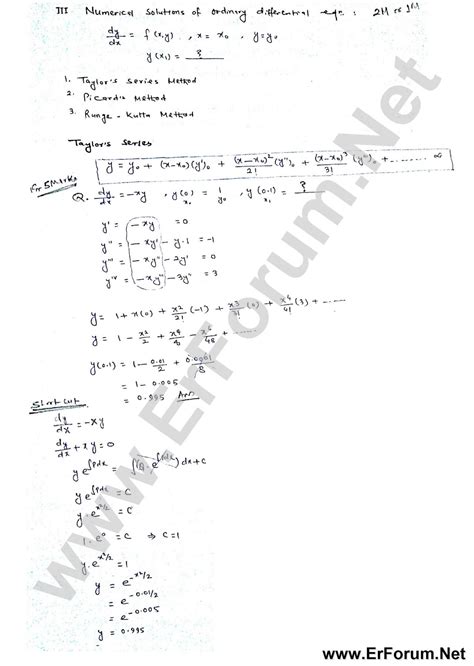 III Numerical solutions of ordinary differential eqn : 2M or 5M
dy/dx = f(x,y) , x = x₀ , y = y₀
y(x₁) = ?
1. Taylor's Series Method
2. Picard's Method
3. Runge - Kutta Method
Taylor's Series
y = y₀ + (x-x₀)(y')₀ + (x-x₀)²/2! (y'')₀ + (x-x₀)³/3! (y''')₀ + ........ ∞
For 5Marks
Q. dy/dx = -xy , y(0) = 1 , y(0.1) = ?
x₀ y₀ x₁
y' = -xy = 0
y'' = -xy' - y.1 = -1
y''' = -xy'' - 2y' = 0
y'''' = -xy''' - 3y'' = 3
y = 1 + x(0) + x²/2! (-1) + x³/3! (0) + x⁴/4! (3) + ......
y = 1 - x²/2 + x⁴/8 - x⁶/48 + ......
y(0.1) = 1 - 0.01/2 + 0.0001/8
= 1 - 0.005
= 0.995 Ans
Short cut
dy/dx = -xy
dy/dx + xy = 0
y e^∫pdx = ∫(Q.e^∫pdx)dx + C
y e^∫pdx = C
y.e^x²/2 = C
1.e⁰ = C ⇒ C=1
y.e^x²/2 = 1
y = e^-x²/2
= e^-0.01/2
= e^-0.005
y = 0.995
www.ErForum.Net
www.ErForum.Net